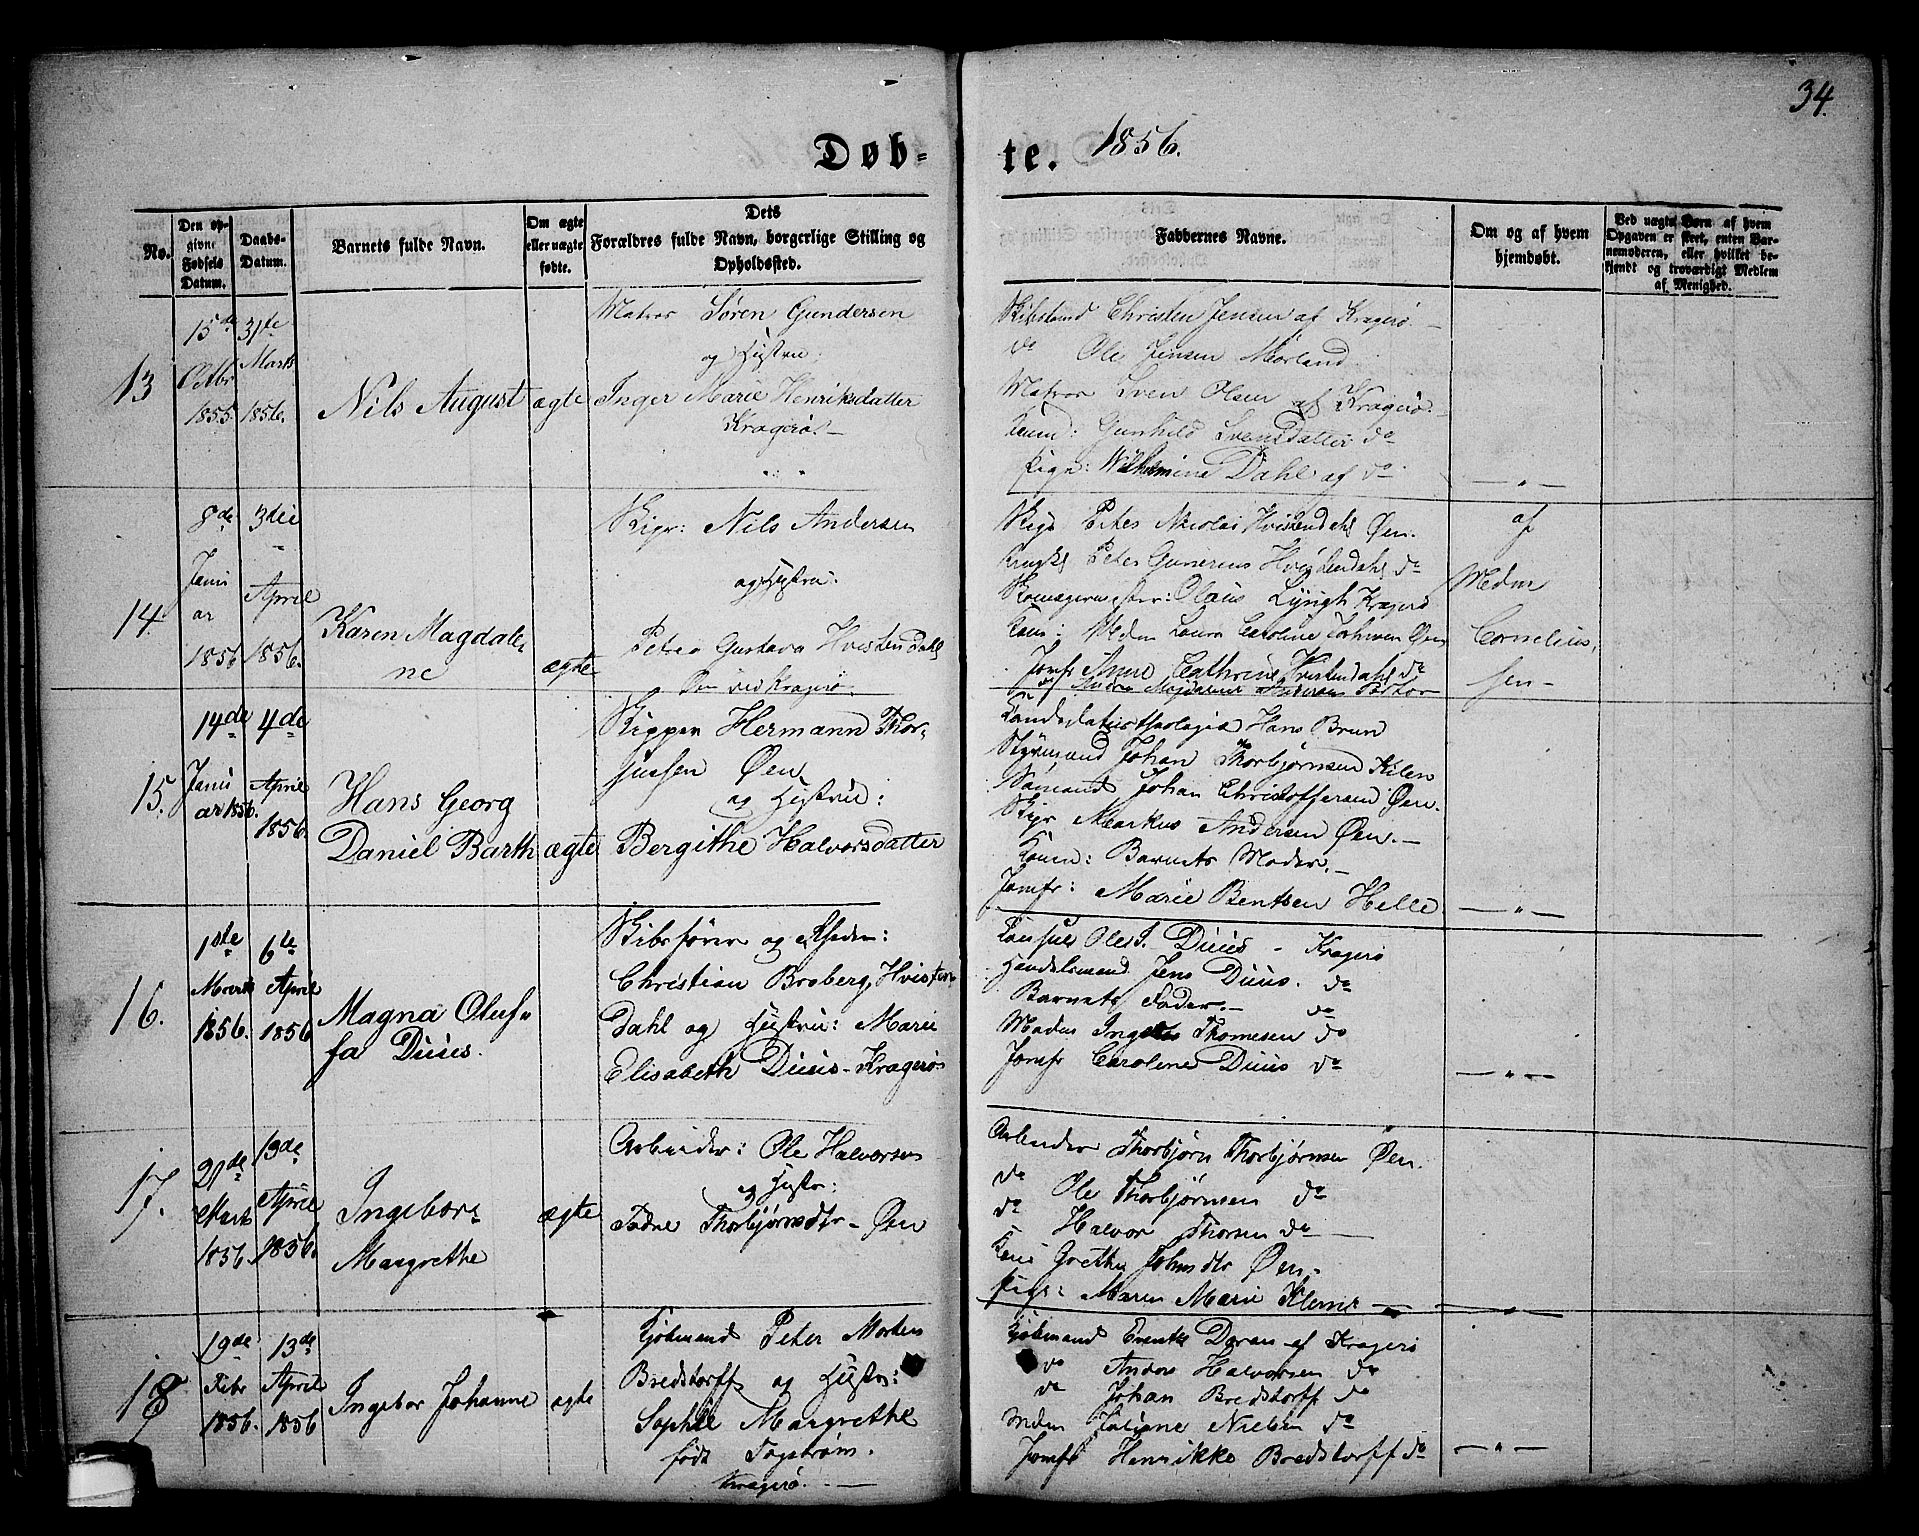 34.
Døb- te. 1856.
No.
Den opgivne Fødsels Datum.
Daabs-Datum.
Barnets fulde Navn.
Om ægte eller uægte fødte.
Dets Forældres fulde Navn, borgerlige Stilling og Opholdssted.
Faddernes Navne.
Om og af hvem hjemdøbt.
Ved uægte Børn af hvem Opgaven er skeet, enten Barnemoderen, eller hvilket bekjendt og troværdigt Medlem af Menighed.
13
15de Octbr 1855
31te Marts 1856.
Nils August
ægte
Matros Søren Gundersen
og Hustru:
Inger Marie Henriksdatter
Kragerø. —
Skibsmd Christen Jensen af Kragerø. —
do Ole Jensen Morland
Matros Sven Olsen af Kragerø.
Konen: Gunhild Svensdatter do
Pige: Wilhelmine Dahl af do
— „ —
14.
8de Januar 1856
3die April 1856.
Karen Magdale,
ne
ægte
Skipr: Nils Andersen
og Hustru:
Petra Gustava Hvistendahl
Øen ved Kragerø.
Skip Peter Nicolai Hvistendahl Øen.
Peter Gunerius Hvistendahl do
Olaus Lyngh Kragerø
Kone: Mdm Laura Caroline Øen
Jomfr Anne Cathrine Hvistendahl do
af
Mdm
Cornelius,
sen —
15.
14de Januar 1856.
4de April 1856
Hans Georg
Daniel Barth
ægte
Skipper Hermann Thor,
Øen
og Hustru:
Bergithe Halvorsdatter
Candidatus theologia Hans Brun
Styrmand Johan Thorbjørnsen Kilen
Sømand Johan Christoffersen Øen.
Skipr Markus Andersen Øen. —
Konen: Barnets Moder. —
Jomfr: Marie Bentsen Helle
— „ —
16.
1ste Marts 1856.
6te April 1856
Magna Oluf„
fa Duus.
Skibsfører og Rheder:
Christian Broberg Hvisten
Dahl og Hustru: Marie
Elisabeth Duus - Kragerø
Consul Ole J. Duus - Kragerø
Handelsmand Jens Duus. do
Barnets Fader. — do
Madm Thomesen do
Jomfr Caroline Duus do
— „ —
17.
21de Marts 1856.
13de April 1856.
Ingebor
Margrethe
ægte
Arbeider: Ole Halvorsen
og Hustr:
Tadne Thorbjørnsdtr - Øen
Arbeider Thorbjørn Thorbjørnsen Øen.
do Ole Thorbjørnsen do
do Halvor Thorsen do —
Kone Grethe Johnsdtr Øen.
Pige: Maren Marie —
— „ —
18
19de Febr 1856.
13de April 1856
Ingebor Johanne
ægte
Kjøbmand Peter Morten
Bredstorff og Hustr:
Sophie Margrethe
født Fogstrøm.
Kragerø. —
Kjøbmand Doran af Kragerø
do Anders Halvorsen do
do Johan Bredstorff do
Mdm Nielsen do
Jomfr Henrikke Bredstorff do
— „ —